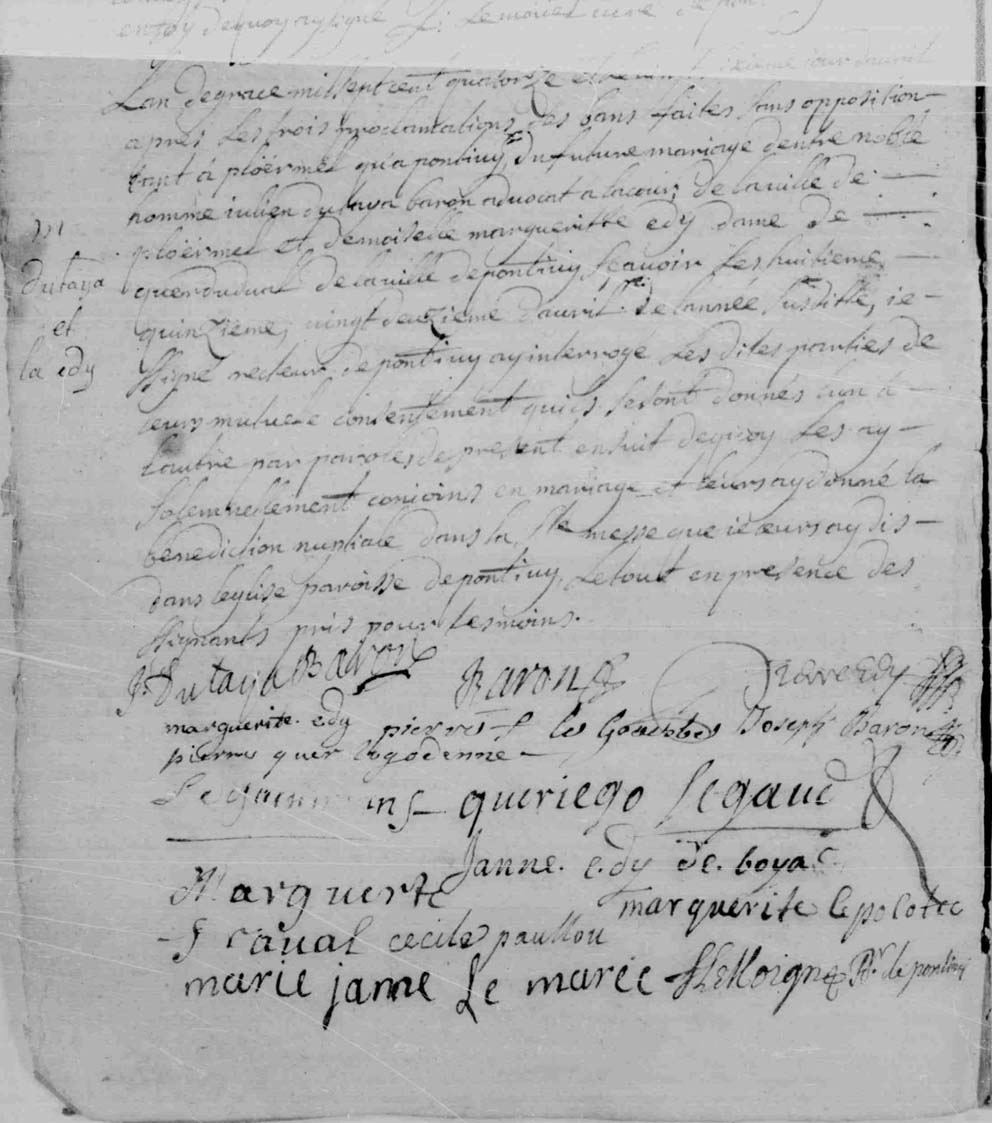 en foy de quoy ay signé
Lan de grace mil sept cent quatorze et le vingt sixieme jour davril
apres les trois proclamations des bans faites sans opposition
tant a ploërmel qu'a pontivy, du future mariage dentre noble
homme iulien dutaya baron advocat a la cour, de la ville de
ploërmel et demoiselle margueritte edy dame de
querdudual de la ville de pontivy, scavoir les huitieme,
quinzieme, vingt deuzieme d'avril de lannée susditte, ie
ssigné recteur de pontivy ay interrogé les dites parties de
leurs mutuele consentement qu'ils se sont donnés l'un a
lautre par paroles de present ensuit de quoy les ay
solemnellement conioins en mariage et leurs ay donné la
benediction nuptiale dans la ste messe que ie leurs ay dis
dans leglise paroisse de pontivy, le tout en presence des
ssignants pris pour tesmoins.
m
dutaya
et
la edy
Jn Dutaya Baron Baron Pierre Edy
marguerite edy pierre Joseph Baron
pierre quer
queriego Segaud
Janne edy de boyac
Marguerite
marguerite le polotec
caval cecile paullou
marie janne Le marec Lemoigne Rr de pontivy